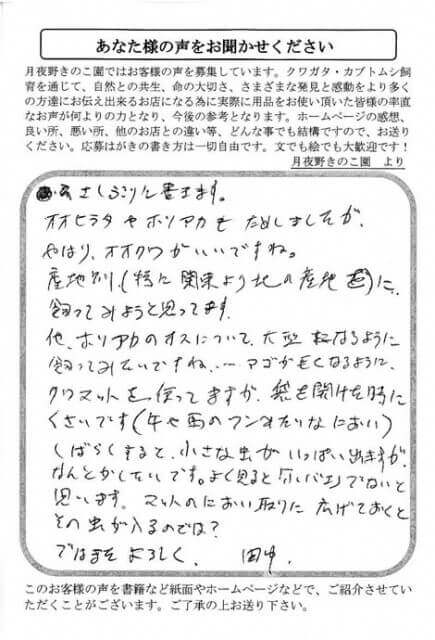 あなた様の声をお聞かせください
月夜野きのこ園ではお客様の声を募集しています。クワガタ・カブトムシ飼
育を通じて、自然との共生、命の大切さ、さまざまな発見と感動をより多く
の方達にお伝え出来るお店になる為に実際に用品をお使い頂いた皆様の率直
なお声が何よりの力となり、今後の参考となります。ホームページの感想、
良い所、悪い所、他のお店との違い等、どんな事でも結構ですので、お送り
ください。応募はがきの書き方は一切自由です。文でも絵でも大歓迎です！
月夜野きのこ園　より
書きます。
オオヒラタやホリアカも ためしましたが、
やはり、オオクワがいいですね。
産地別、(特に関東より北の産地)に、
飼ってみようと思ってます。
他、ホリアカのオスについて、大型になるように
飼ってみたいですね、… アゴが長くなるように、
クワマットを使ってますが、袋を開けた時に
くさいです(牛や馬のフンみたいなにおい)
しばらくすると、小さな虫がいっぱい出ますが、
なんとかしたいです。よく見ると でないと
思います。マットのにおい取りに 広げておくと
その虫が入るのでは？
ではまた よろしく、 田中.
このお客様の声を書籍など紙面やホームページなどで、ご紹介させてい
ただくことがございます。ご了承の上お送り下さい。